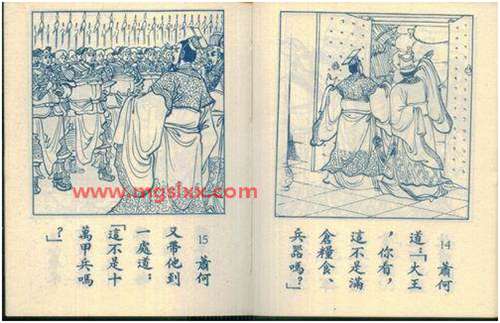 14 蕭何
道：「大王
，你看，
這不是滿
倉糧食、
兵器嗎？」
15 蕭何
又帶他到
一處道：
「這不是十
萬甲兵嗎
？」
www.mgslxx.com